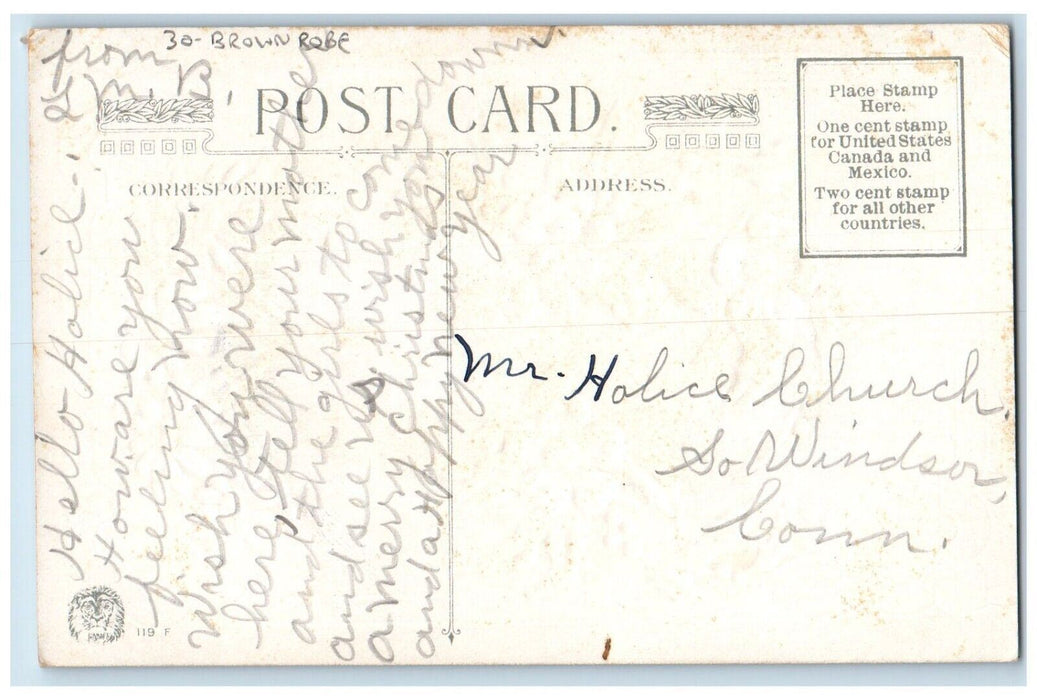 30-BROWN ROBE
POST CARD.
CORRESPONDENCE.
ADDRESS.
Place Stamp
Here.
One cent stamp
for United States
Canada and
Mexico.
Two cent stamp
for all other
countries.
Hello Holice..
How are you
feeling now.
Wish you were
here, Tell your mother
and the girls to come
and see us I wish you
a merry Christmas
and a Happy new year
from
M. B.
Mr. Holice Church,
So Windsor,
Conn.
119 F